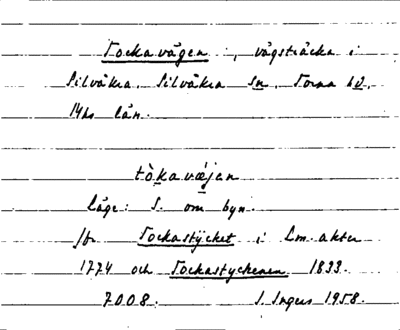 Tockavägen :, vägsträcka i
Silvåkra, Silvåkra sn, Torna hd,
Mhs län.
tòkavæjen
läge: S. om byn.
Jfr Tockastÿcket i Lm. akter
1774 och Tockastyckenen 1833.
7008. S. Ingers 1958.